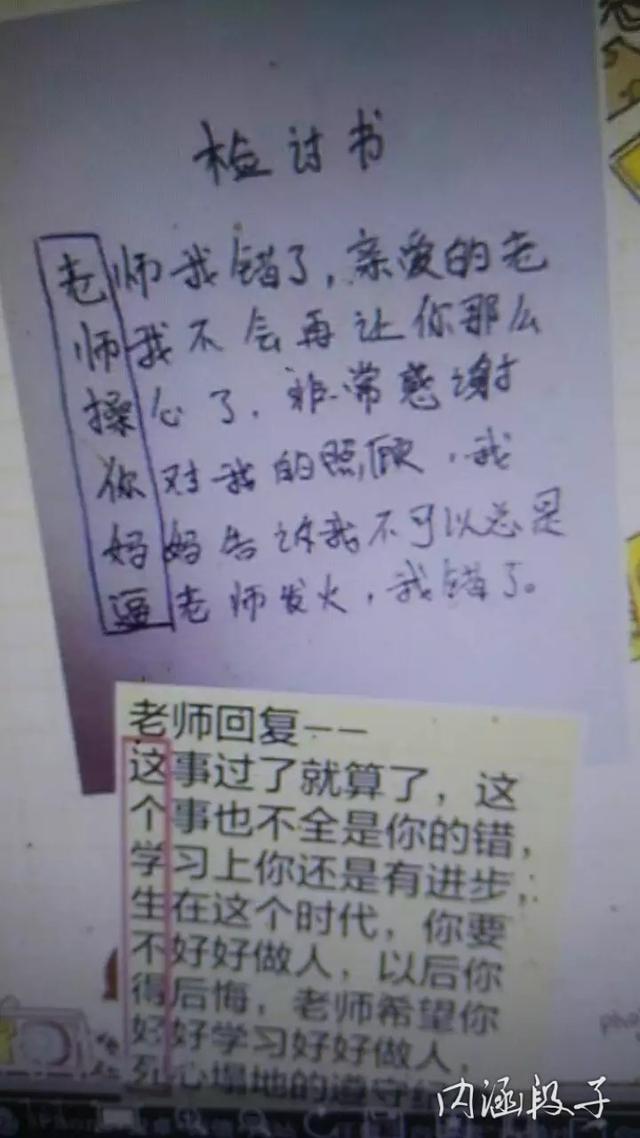 检讨书
老师我错了，亲爱的老
师我不会再让你那么
操心了．非常感谢
你对我的照顾．我
妈妈告诉我不可以总是
逼老师发火，我错了。
老师回复——
这事过了就算了，这
个事也不全是你的错，
学习上你还是有进步，
生在这个时代，你要
不好好做人，以后你
得后悔，老师希望你
好好学习好好做人，
死心塌地的遵守
内涵段子